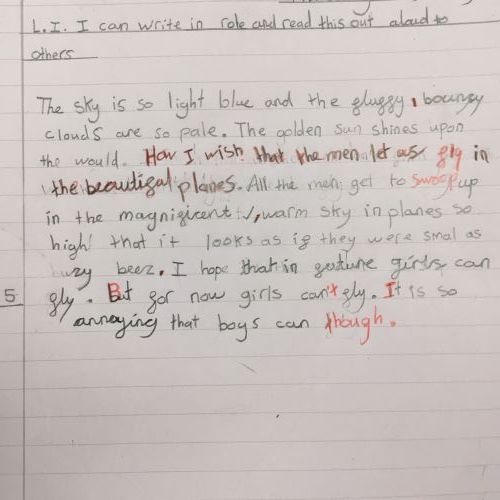 L.I. I can write in role and read this out aloud to
others
The sky is so light blue and the gluggy, bounsy
clouds are so pale. The golden sun shines upon
the would. How I wish that the men let us gly in
the beautigal planes. All the men get to swoop up
in the magnigicent, warm sky in planes so
high that it looks as ig they were smal as
beez. I hope that in guture girls can
gly. But gor now girls can't gly. It is so
5
annoying that boys can though.